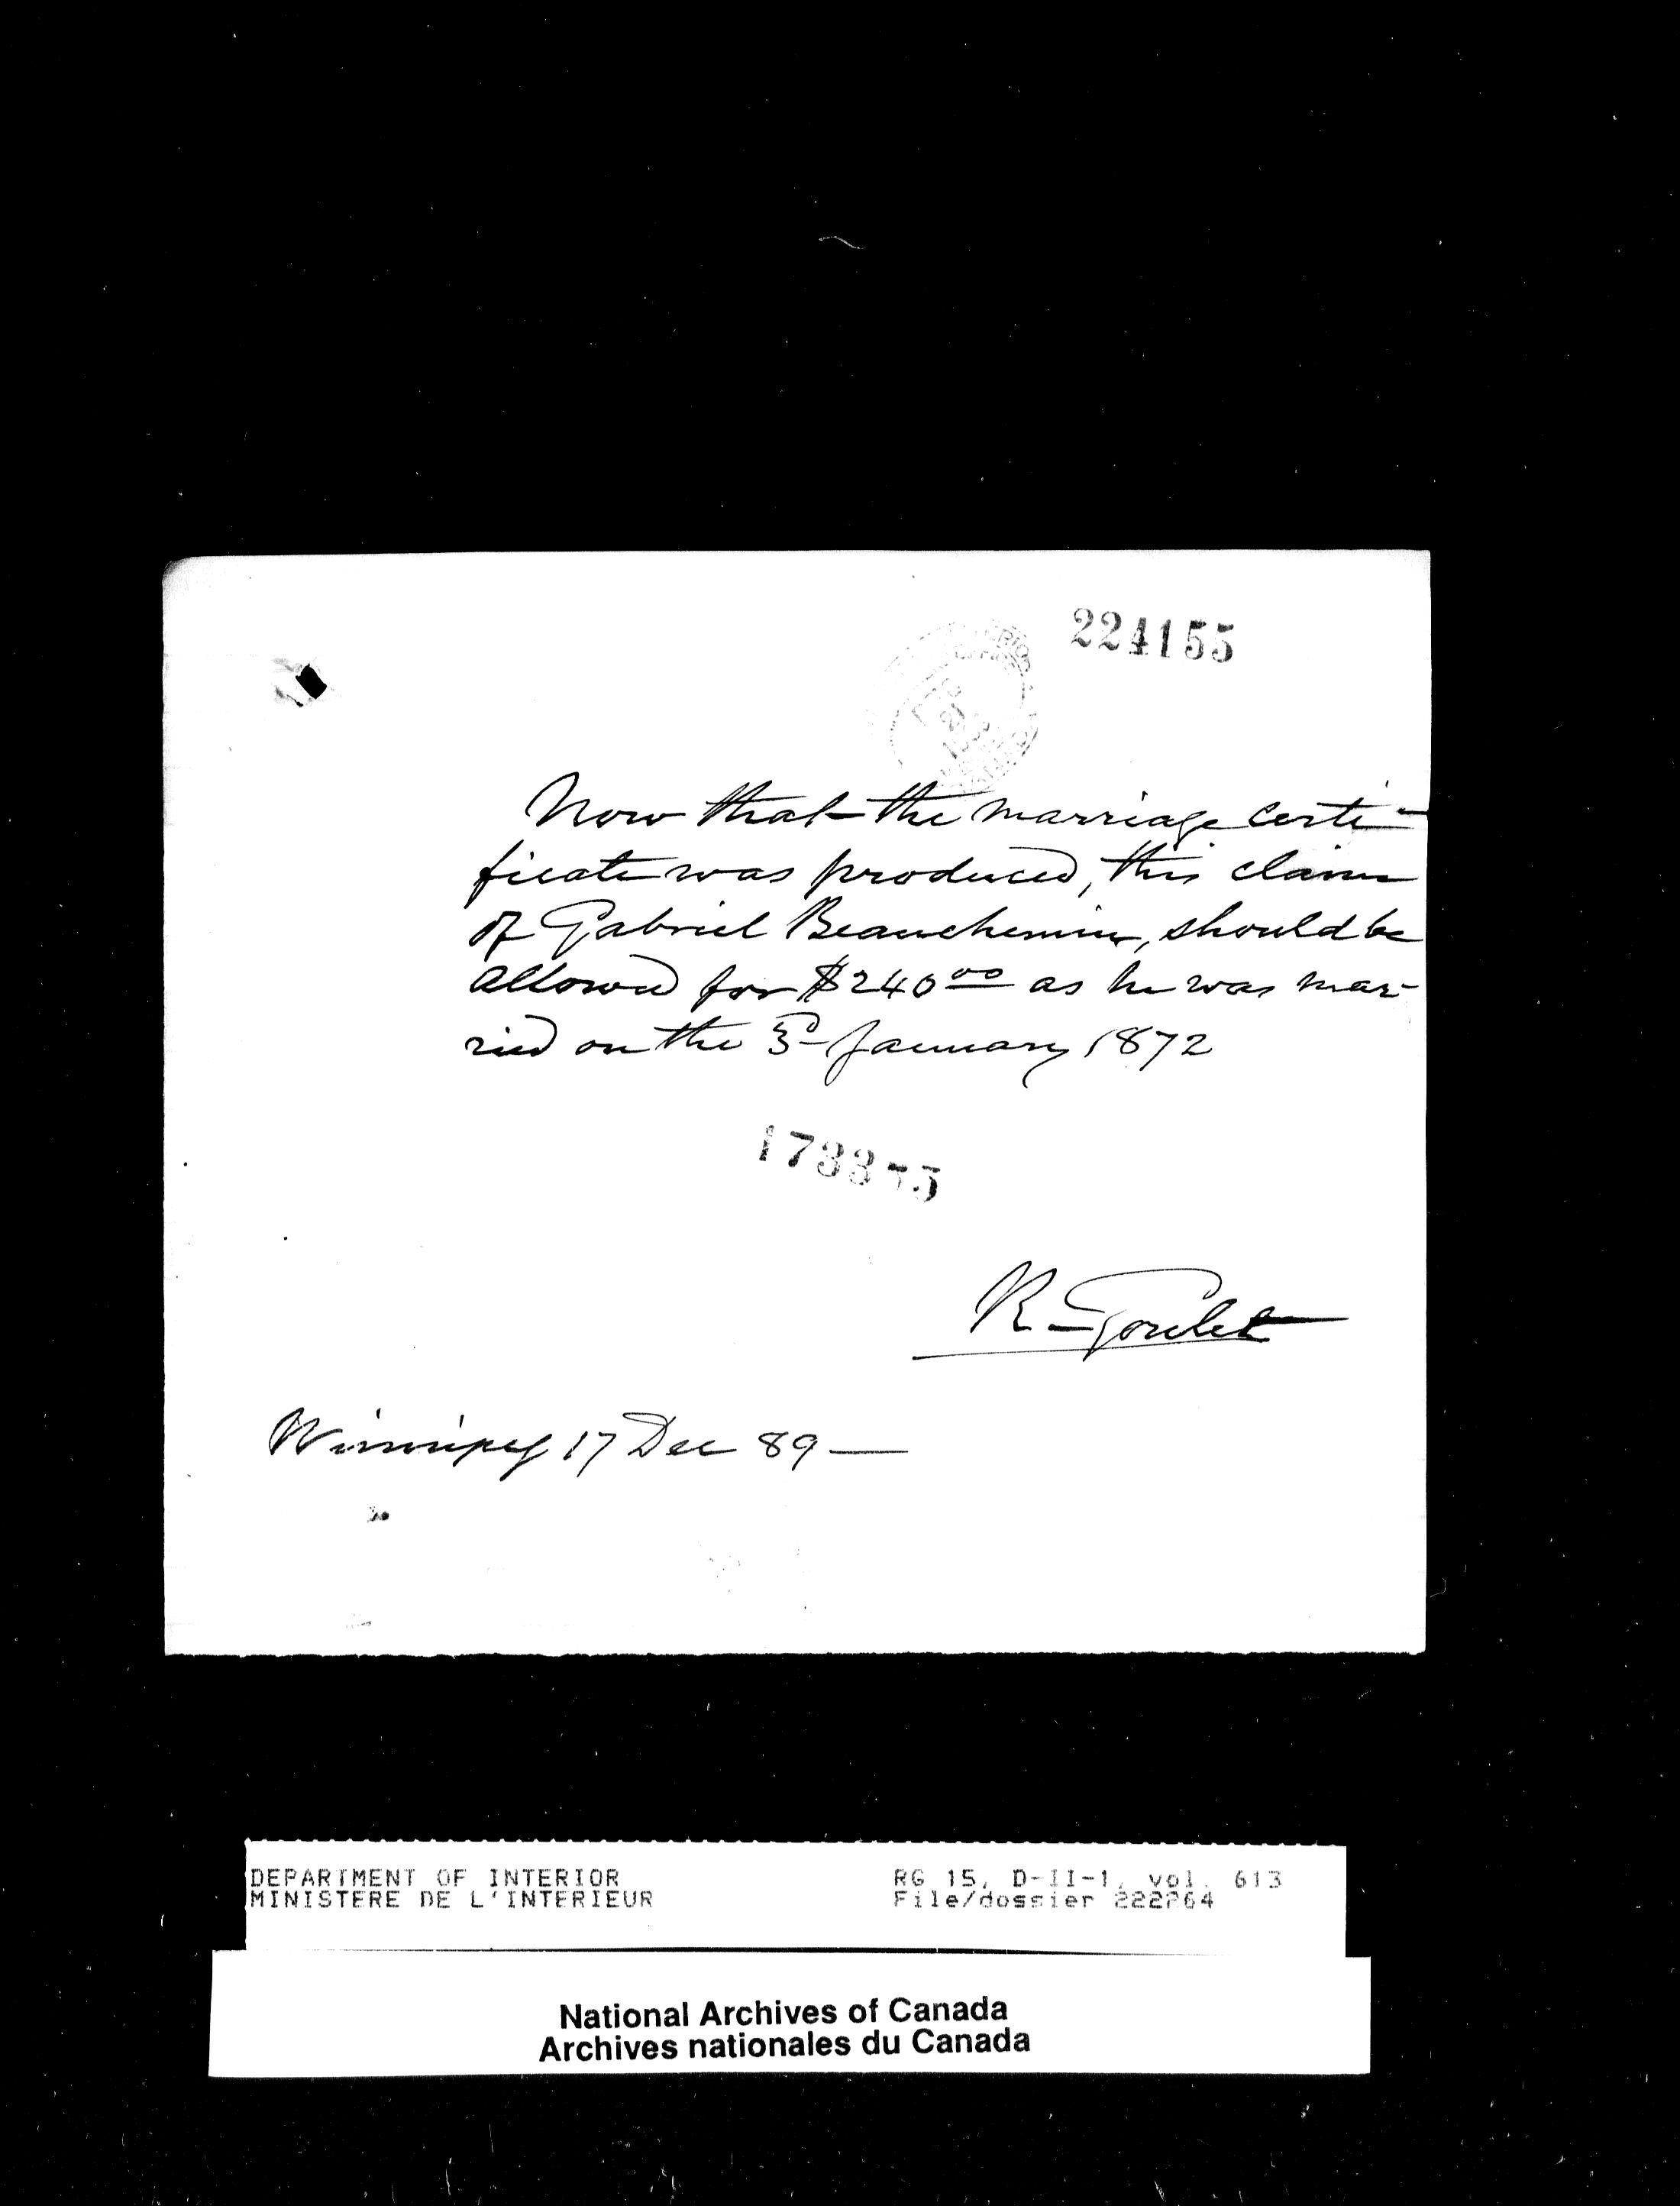 224155
Now that the marriage certi-
ficate was produced, this claim
of Gabriel Beauchemin, should be
allowed for $240 00 as he was mar-
ried on the 3d January 1872
R. Goulet
Winnipeg 17 Dec 89 —
DEPARTMENT OF INTERIOR
MINISTERE DE L'INTERIEUR
RG 15, D-II-1, vol. 613
File/dossier 222264
National Archives of Canada
Archives nationales du Canada